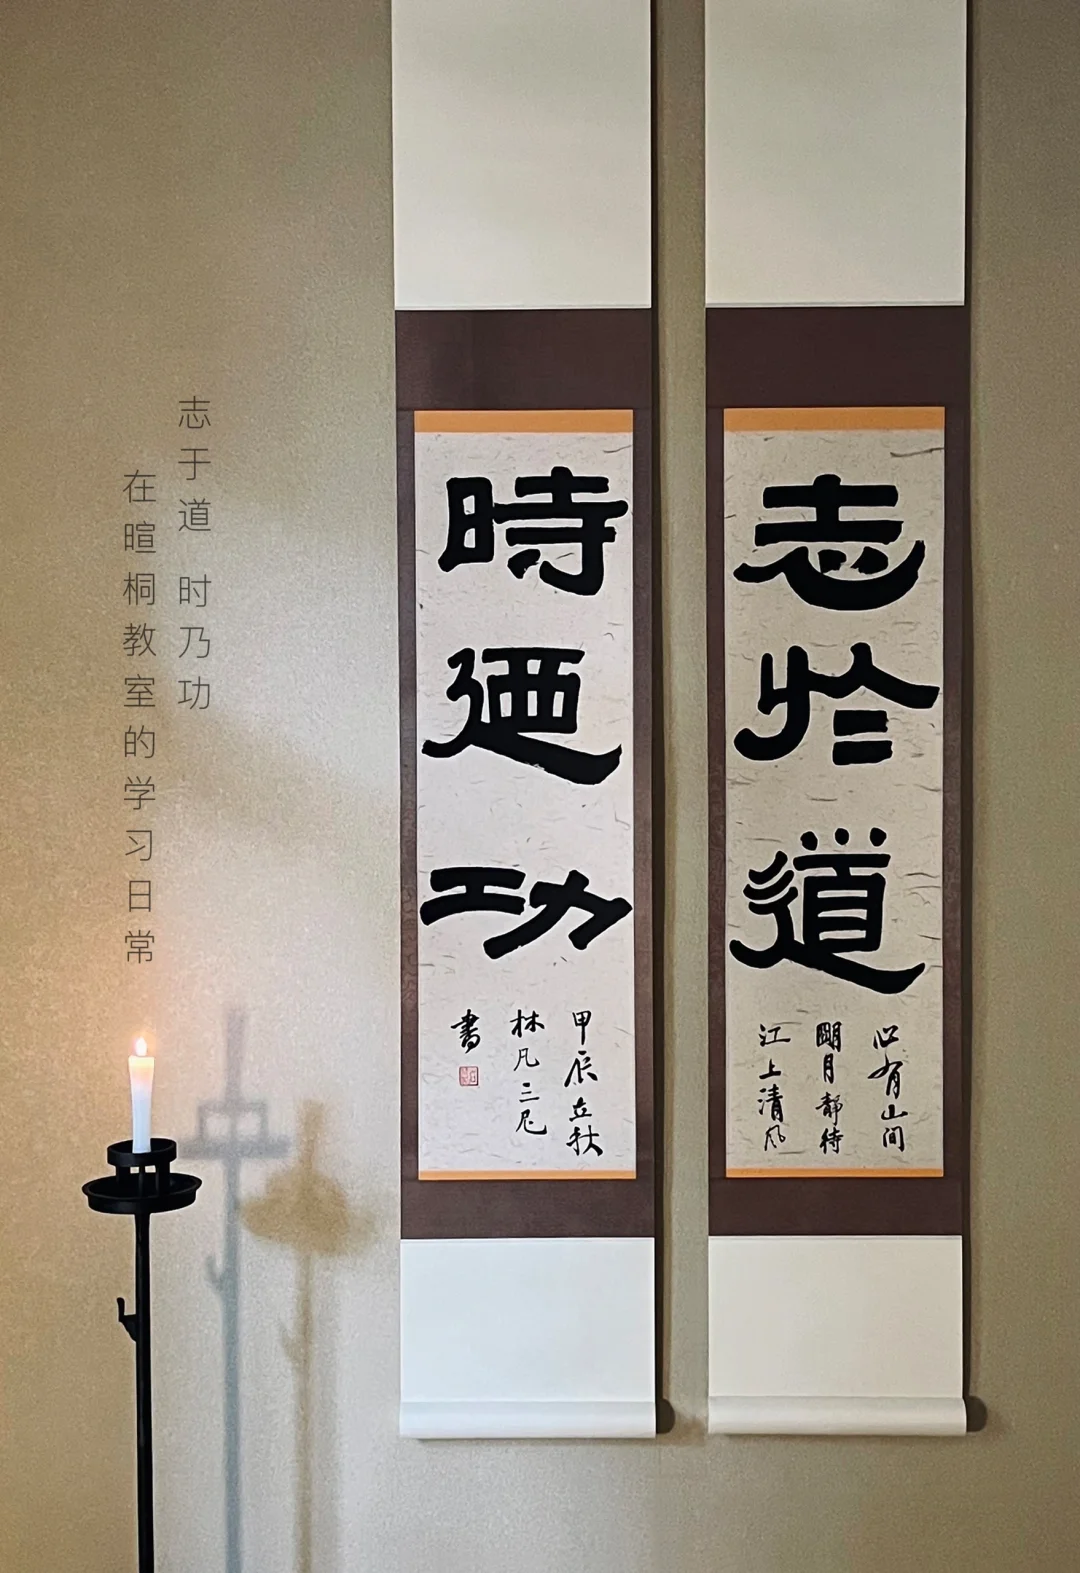 志於道
心有山間
朙月靜待
江上清风
時迺功
甲辰立秋
林凡三
書
志于道 时乃功
在暄桐教室的学习日常